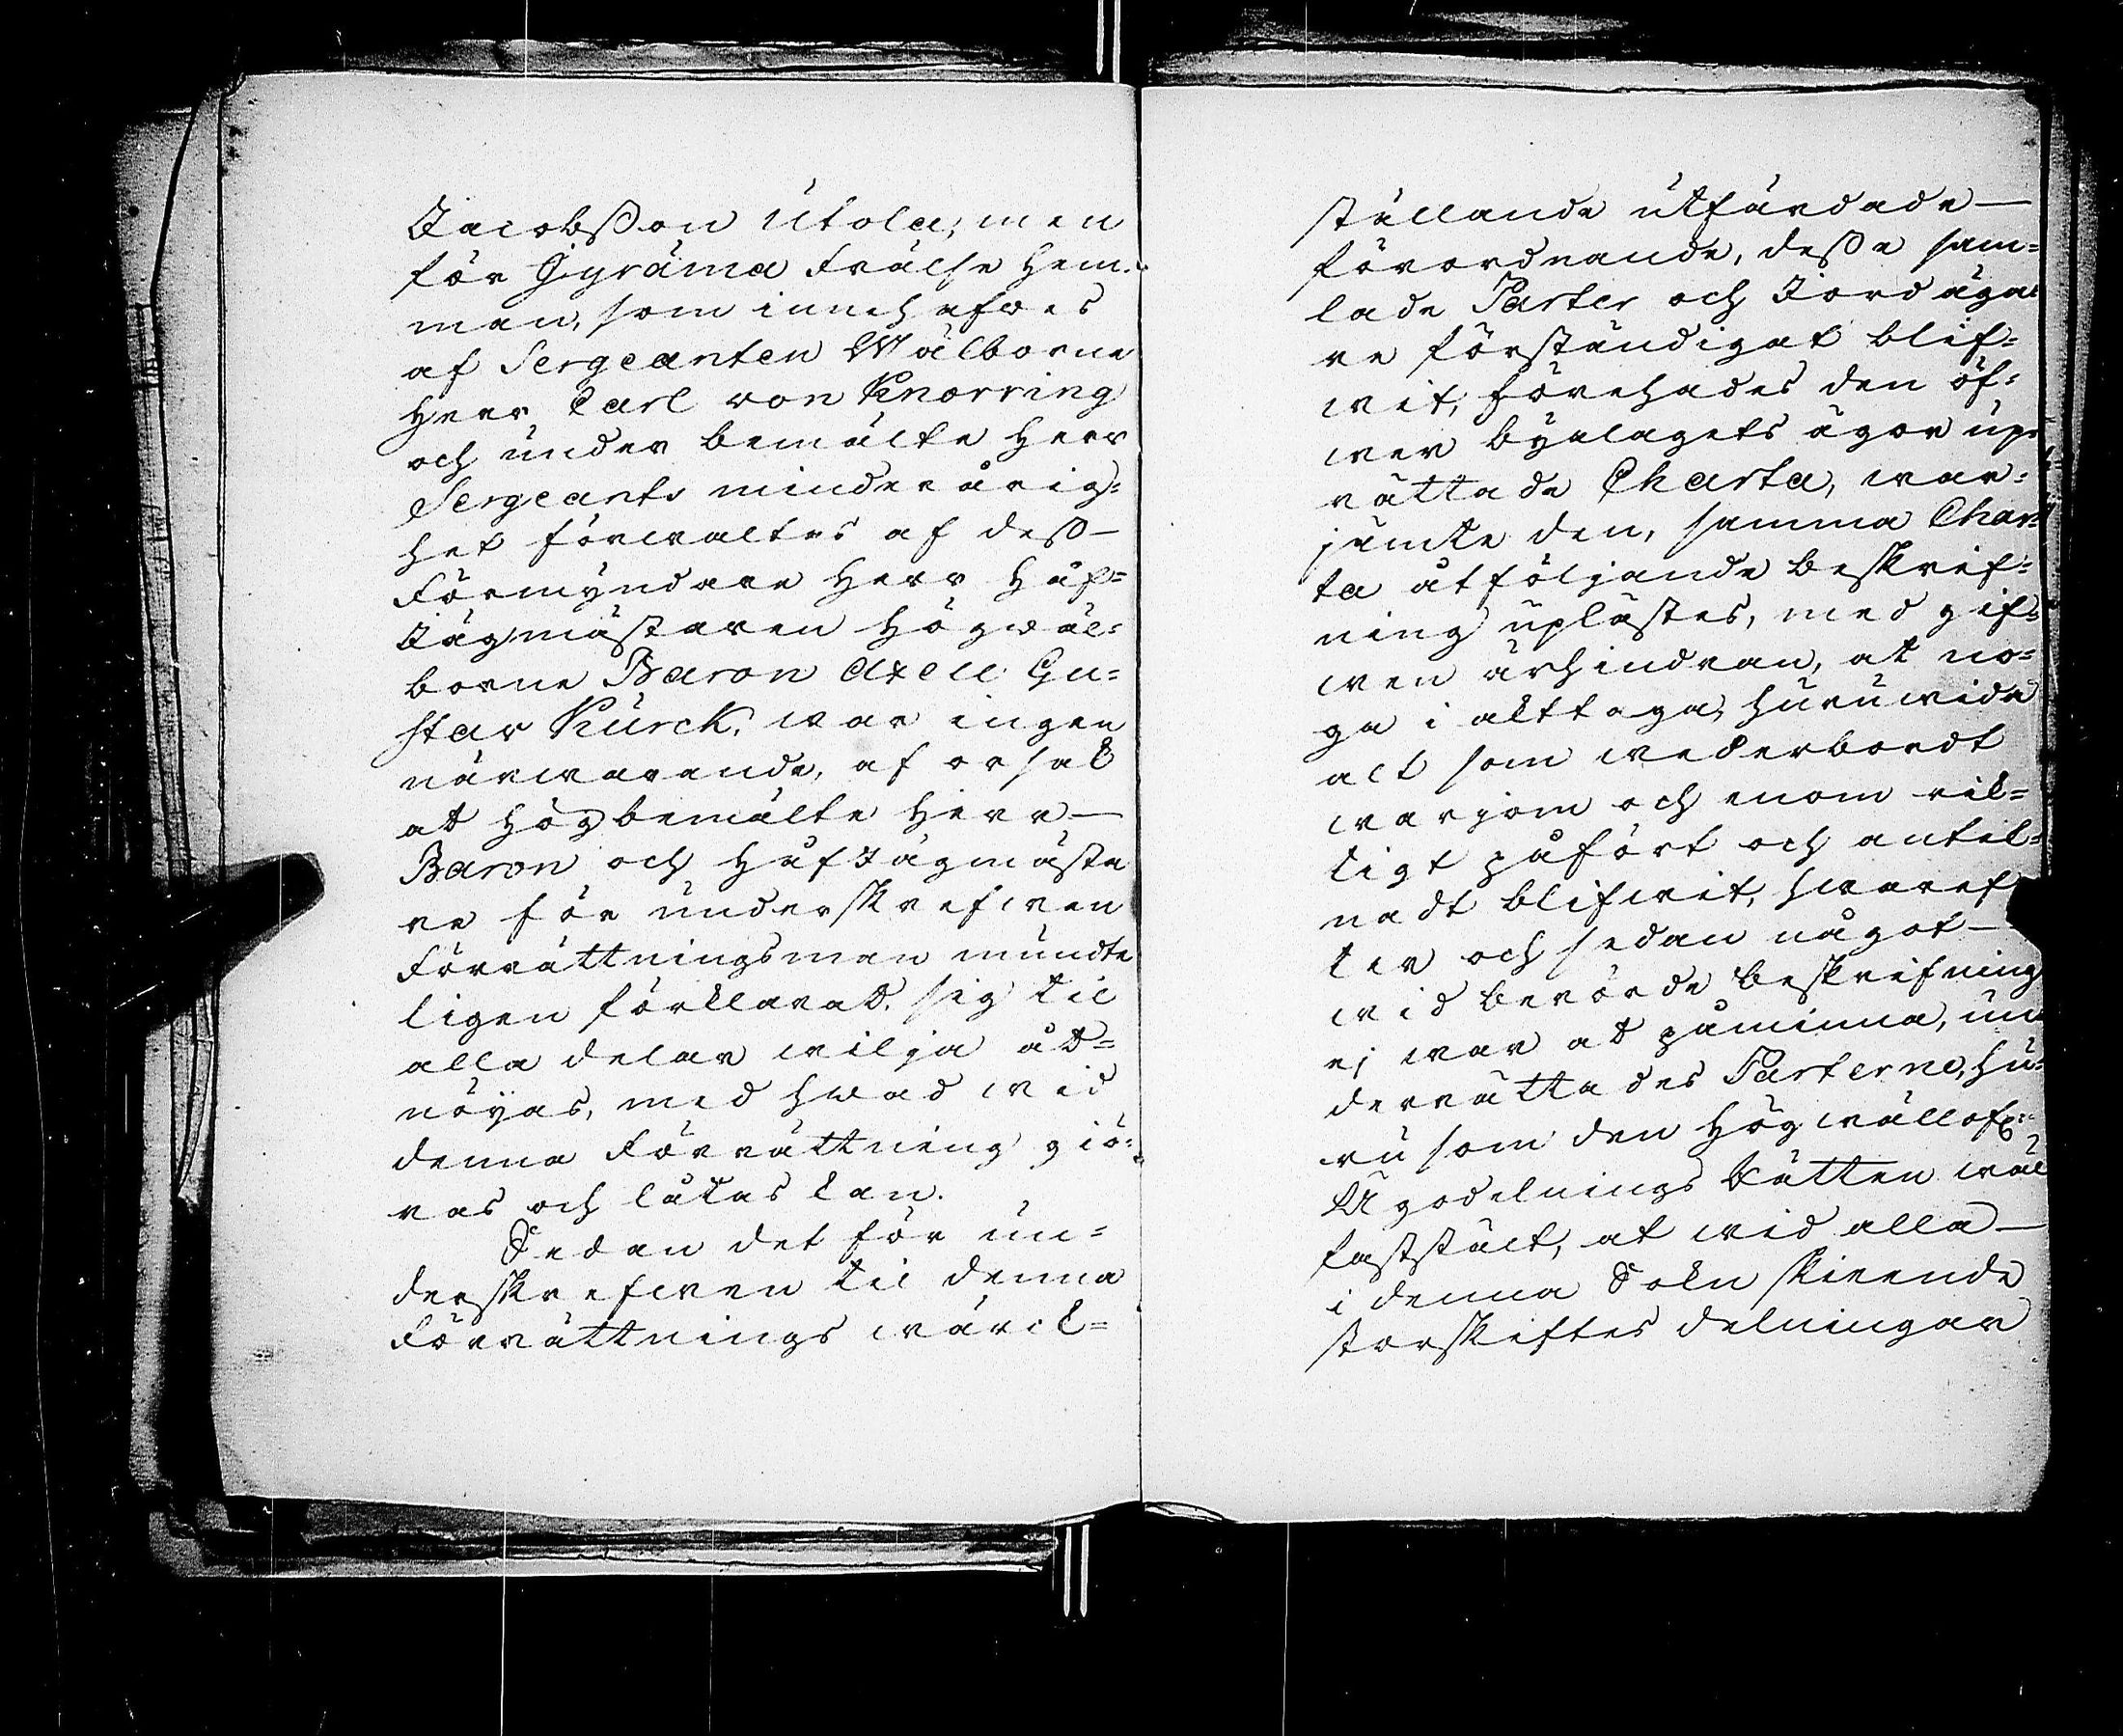 Jacobsson Utola; men
för Gyräma Frälse Hem-
man, som innehafwes
af Sergeanten Wälborne
Herr Carl von Knorring
och under bemälte Herr
Sergeants minderårig=
het förwaltes af dess—
Förmyndare Herr Håf=
Jägmästaren Högwäl=
borne Baron Axell Gu=
stav Kurck, war ingen
närwarande, af orsak
at Högbemälte Herr—
Baron och Håfjägmästa
re för underskrefwen
Förrättningsman mundte
ligen förklarat sig til
alla delar wilja åt=
nöyas, med hwad wid
denna Förrättning giö=
ras och låtas kan.
Sedan det för un=
derskrefwen til denna
Förrättnings wärck=
ställande utfärdade—
förordnande, desse sam=
lade Parter och Jordäga
re förständigat blif=
wit, förehades den öf=
wer byalagets ägor up=
rättade Charta, war=
jämte den, samma Char
ta åtföljande beskrif=
ning uplästes, med gif=
wen ärhindran, at no=
ga i akttaga, huruwida
alt som wederbordt
warjom och enom rik=
tigt påfört och antek=
nadt blifwit, hwaref
ter och sedan något—
wid berörde beskrifning
ej war at påminna, un
derrättades Parterne, hu=
ru som den Högwällofl:
Ägodelnings Rätten wäl
faststält, at wid alla—
i denna Sokn skeende
storskiftes delningar